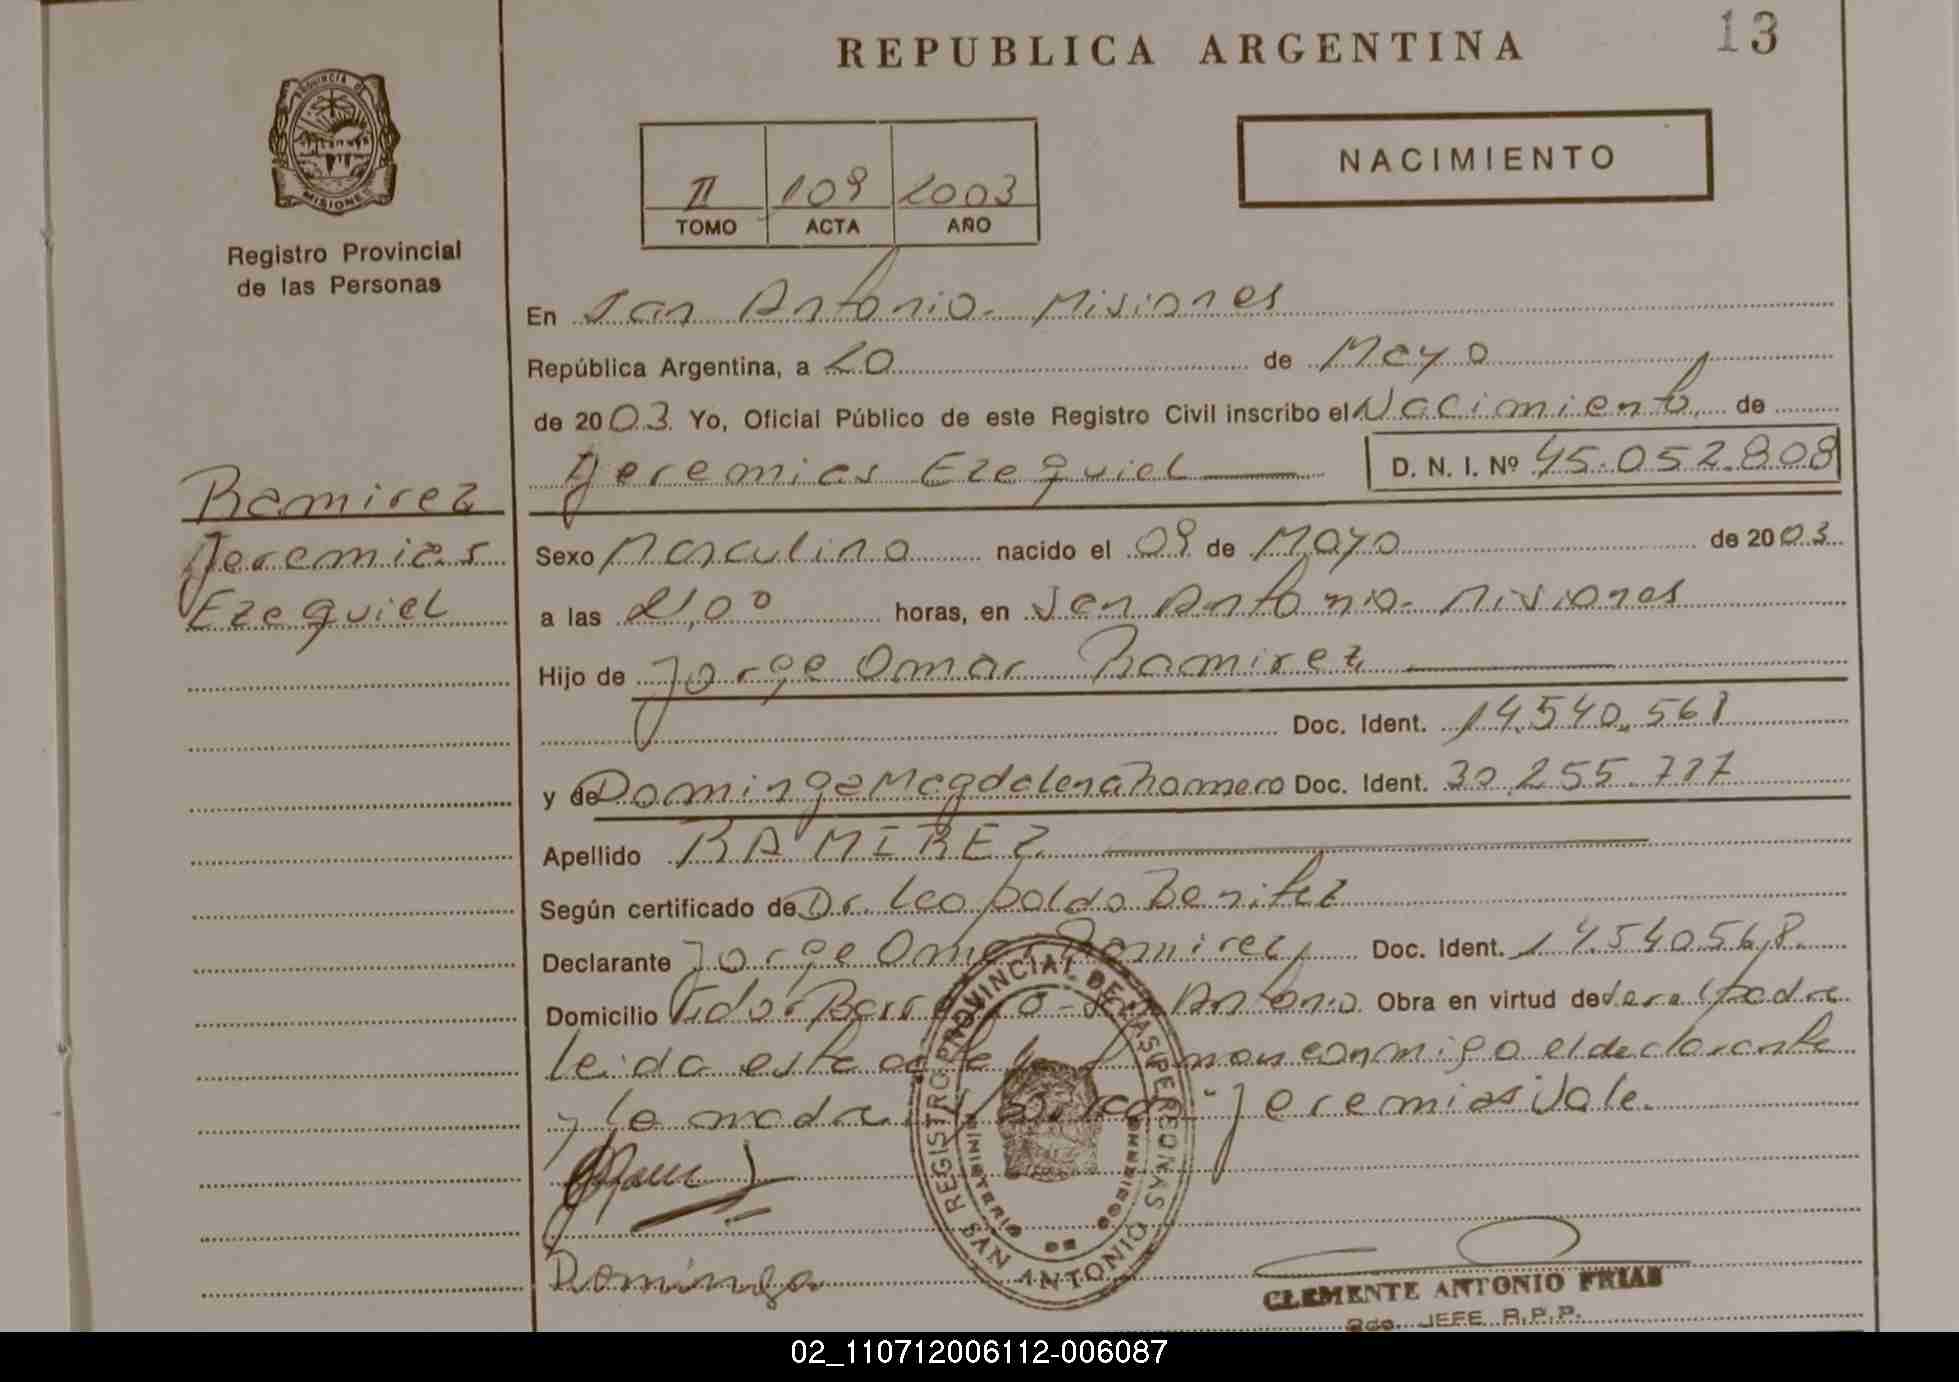 REPUBLICA ARGENTINA
13
PROVINCIA DE
MISIONES
Registro Provincial
de las Personas
NACIMIENTO
II 109 2003
TOMO ACTA AÑO
En San Antonio - Misiones
República Argentina, a 20 de Mayo
de 2003 Yo, Oficial Público de este Registro Civil inscribo el Nacimiento de
Jeremias Ezequiel D. N. I. Nº 45.052.808
Ramirez
Jeremias
Ezequiel
Sexo Masculino nacido el 09 de Mayo de 2003
a las 21,00 horas, en San Antonio - Misiones
Hijo de Jorge Omar Ramirez
Doc. Ident. 14.540.568
y de Dominga Magdalena Romero Doc. Ident. 30.255.777
Apellido RAMIREZ
Según certificado de Dr. Leopoldo Benitez
Declarante Jorge Omar Ramirez Doc. Ident. 14.540.568
Domicilio San Antonio. Obra en virtud de ser el padre
leida este acta la firman conmigo el declarante
y la madre. Jeremias Vale.
Dominga
REGISTRO PROVINCIAL DE LAS PERSONAS
SAN ANTONIO
MINISTERIO DE GOBIERNO
CLEMENTE ANTONIO FRIAS
2do. JEFE R.P.P.
02_110712006112-006087